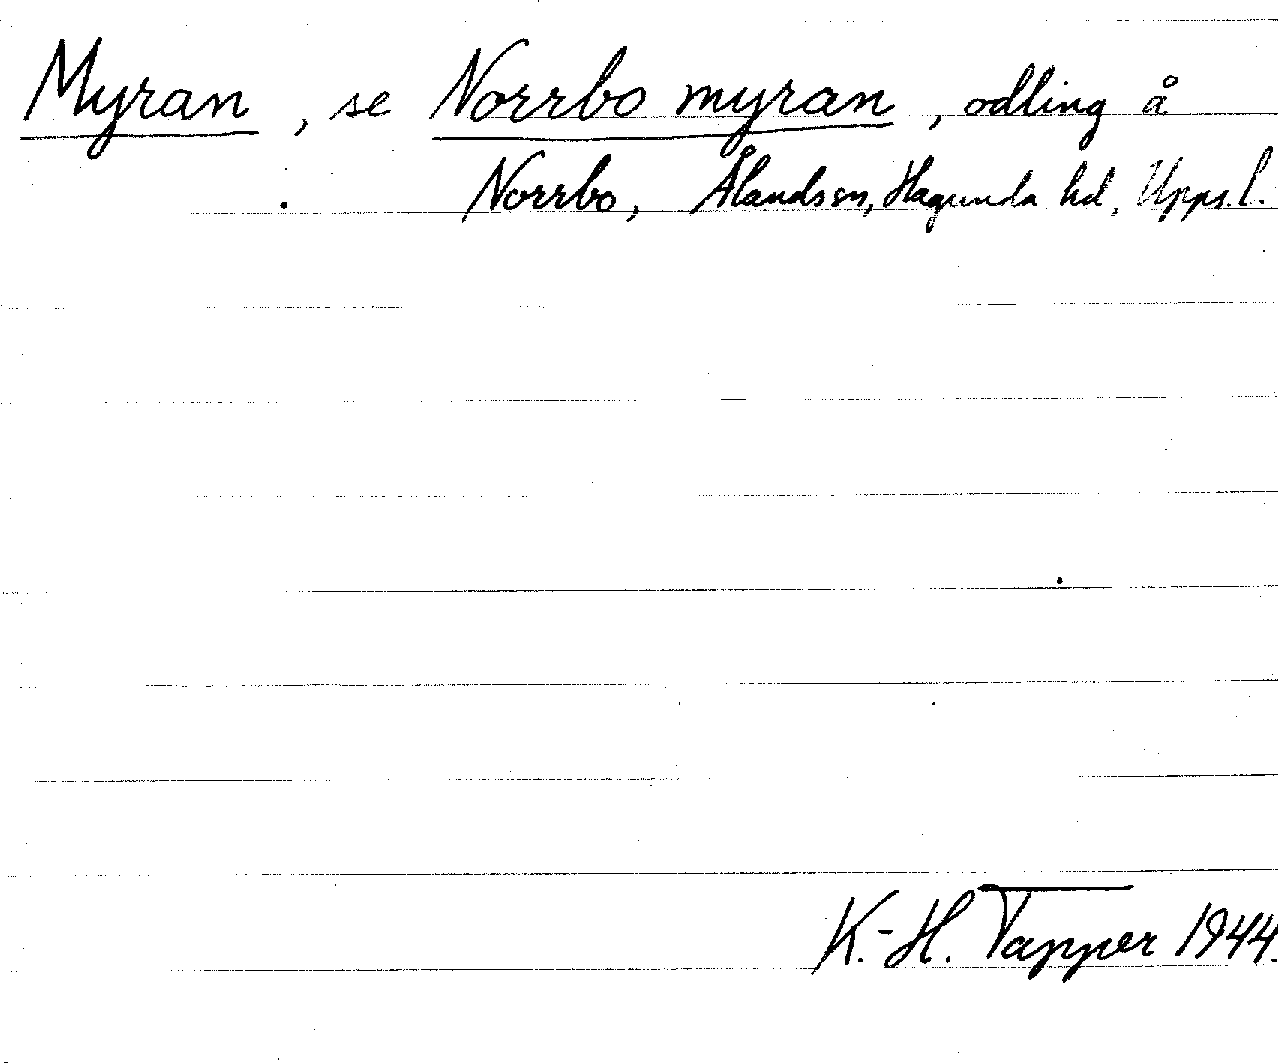 Myran, se Norrbo myran, odling å
Norrbo, Ålands sn, Hagunda hd, Upps. l.
K.-H. Tapper 1944.